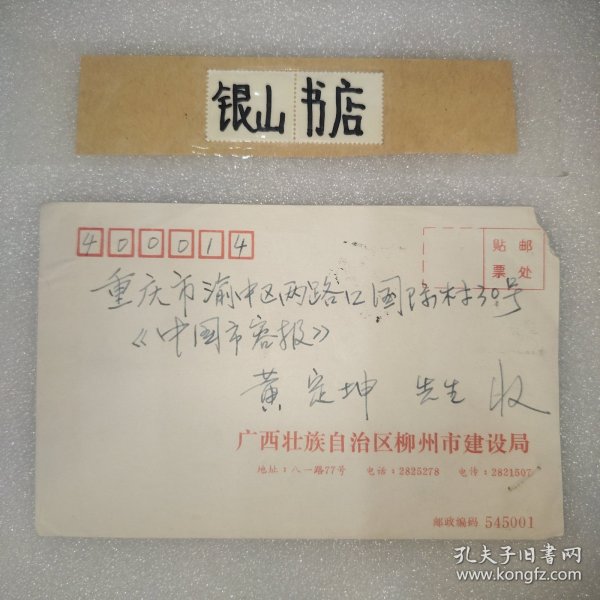 银山书店
400014
贴邮
票处
重庆市渝中区两路口国际村30号
《中国市容报》
黄定坤 先生 收
广西壮族自治区柳州市建设局
地址：八一路77号 电话：2825278 电传：2821507
邮政编码 545001
孔夫子旧书网
www.kongfz.com